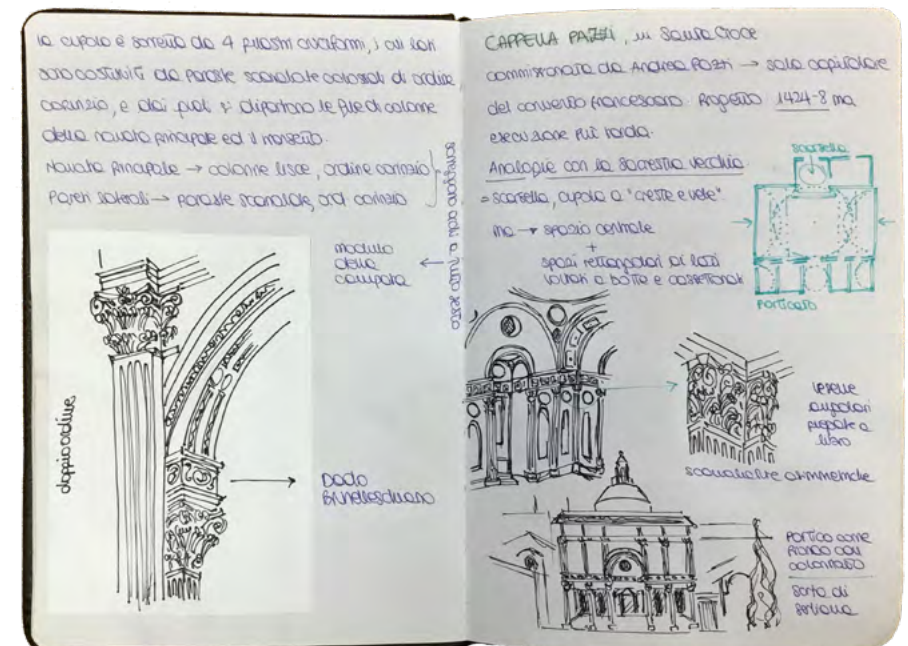 la cupola è sorretta da 4 pilastri cruciformi, i cui lati
sono costituiti da paraste scanalate colossali di ordine
corinzio, e dai quali si dipartono le file di colonne
della navata principale ed il transetto.
Navata principale → colonne lisce, ordine corinzio
Pareti laterali → paraste scanalate, ord corinzio
sorreggono archi a tutto sesto
modulo
della
campata
doppio ordine
DADO
BRUNELLESCHIANO
CAPPELLA PAZZI, in Santa Croce
commissionata da Andrea Pazzi → sala capitolare
del convento francescano. Progetto 1424-8 ma
esecuzione più tarda.
Analogie con la Sacrestia Vecchia
= scarsella, cupola a "creste e vele".
ma → spazio centrale
+
spazi rettangolari ai lati
voltati a botte e cassettonati
scarsella
PORTICATO
lesene
angolari
piegate a
libro
scanalature asimmetriche
PORTICO come
PRONAO con
colonnato
sorta di
serliana